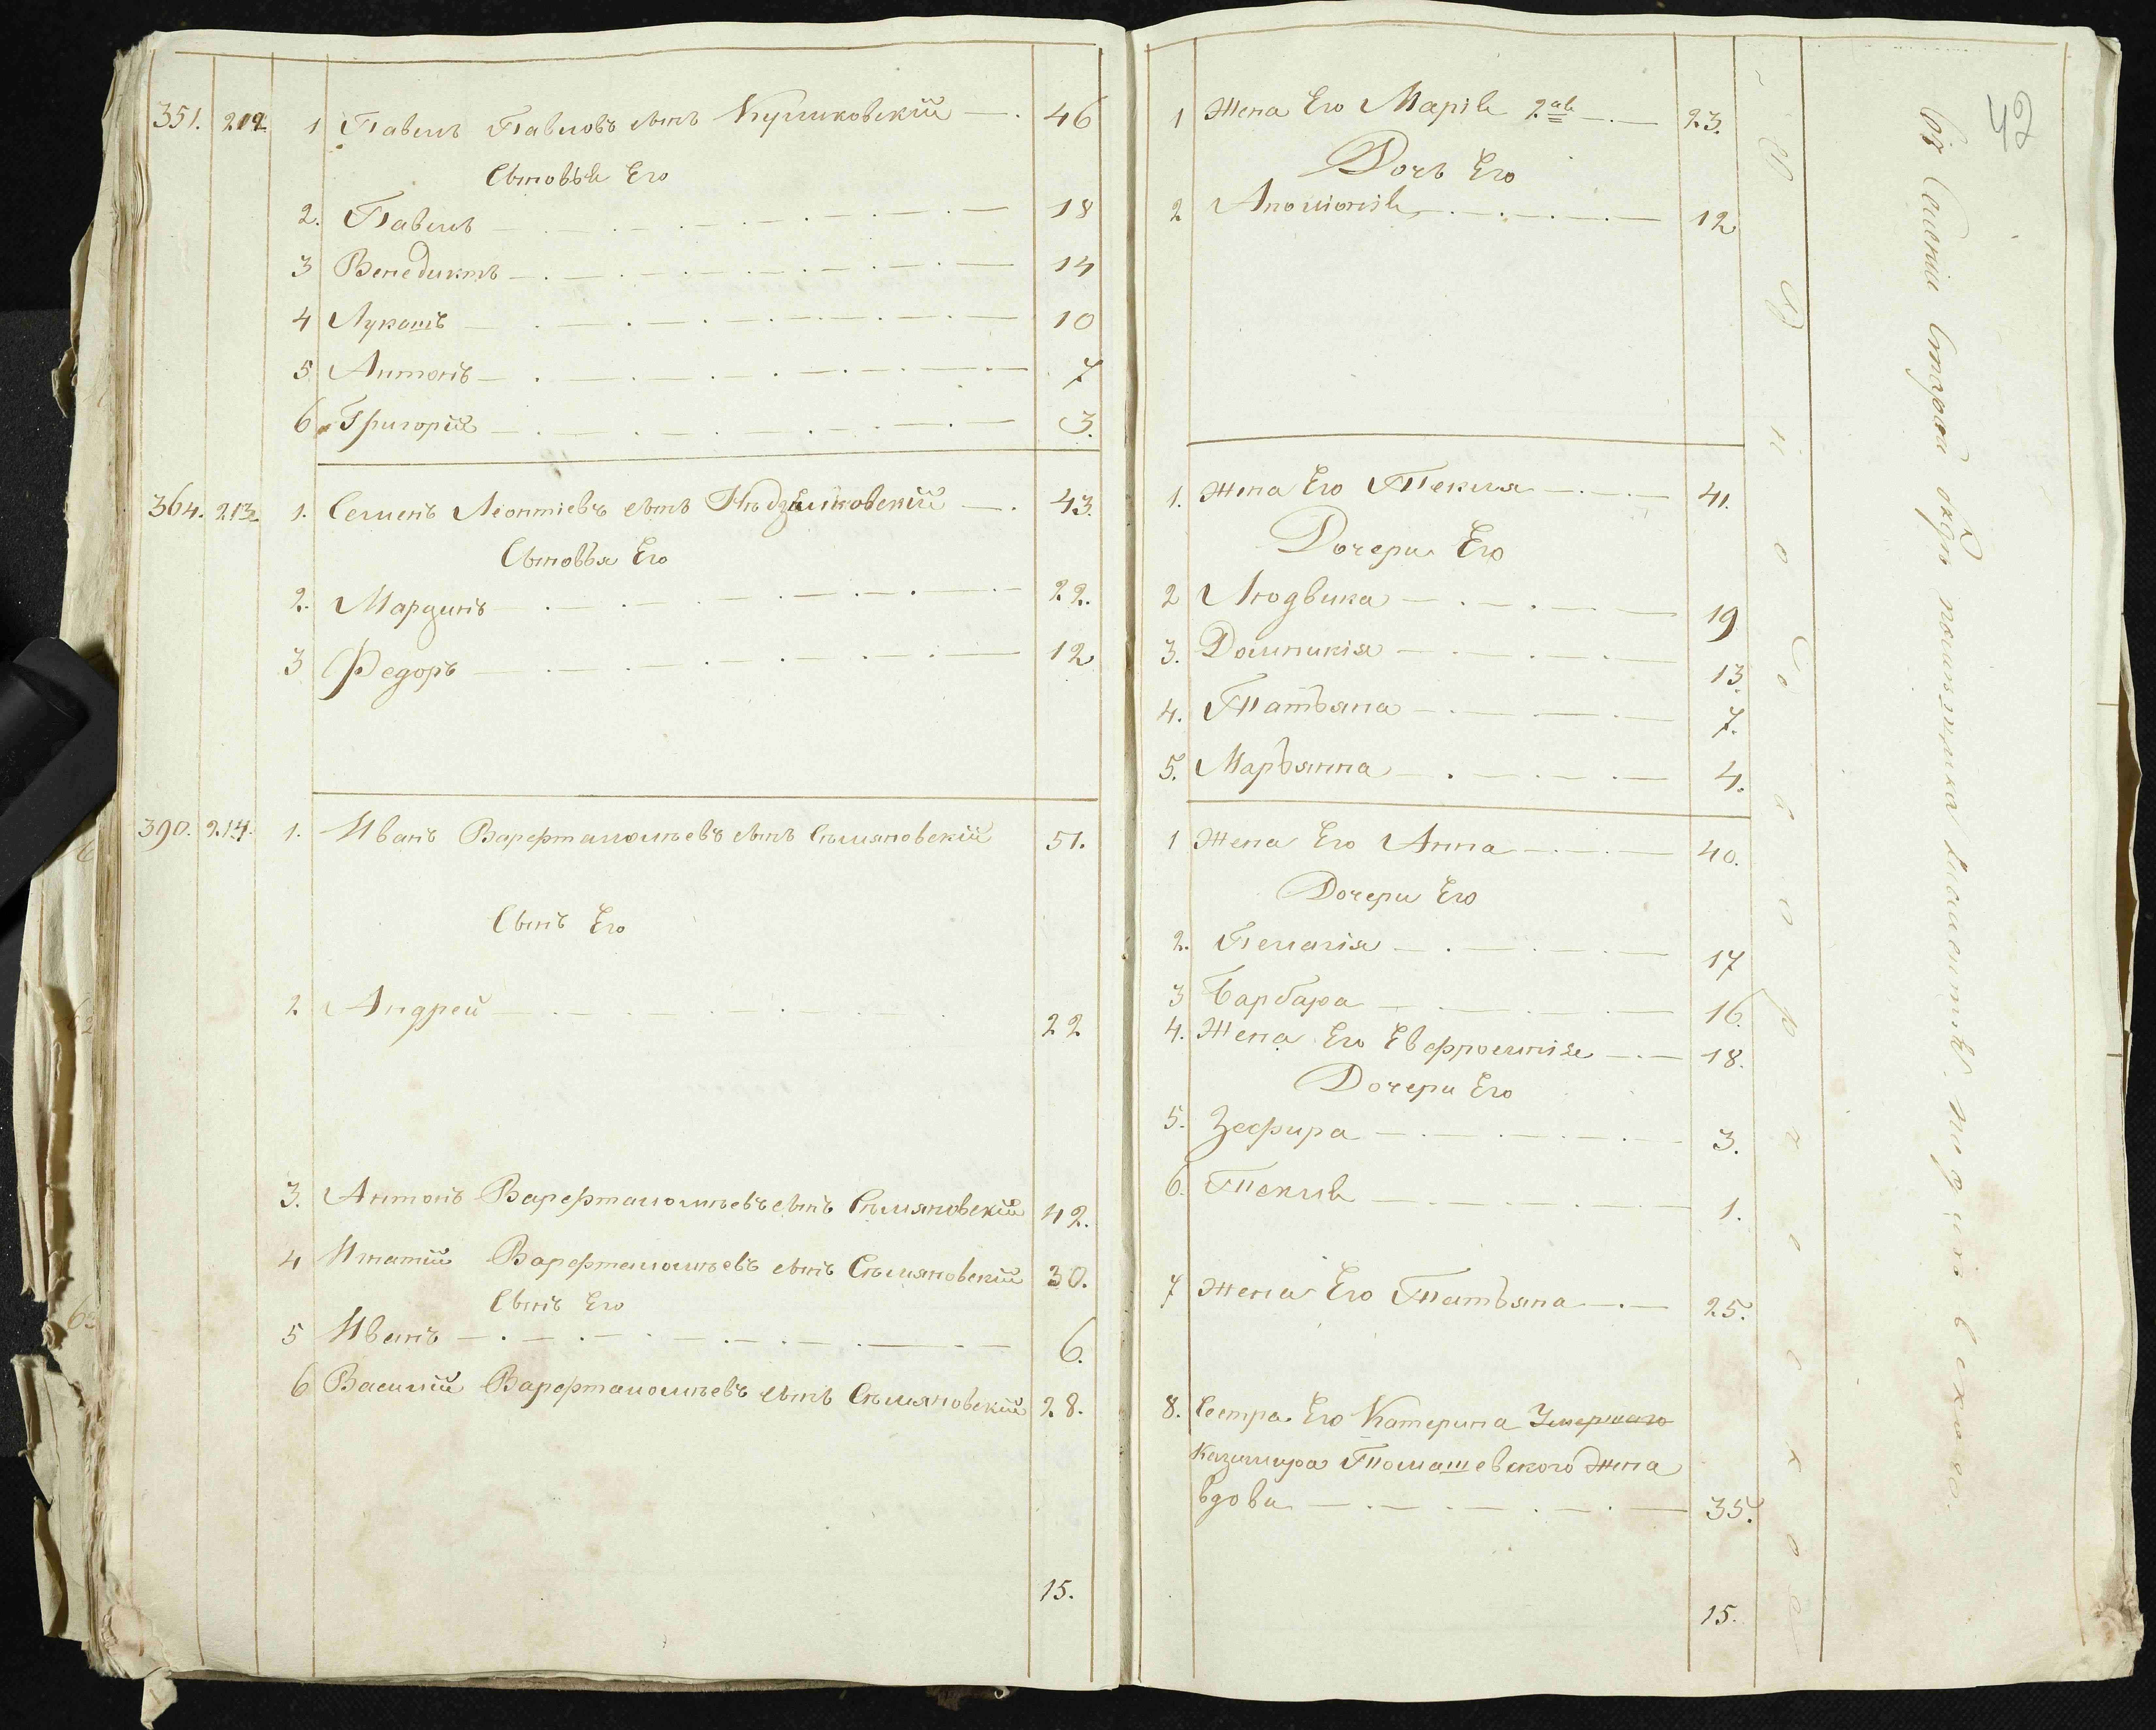 351. 212. 1 Павелъ Павловъ сынъ Куликовскій 46
Сыновья Его
2. Павелъ 18
3 Венедиктъ 14
4 Лукашъ 10
5 Антонъ 7
6 Григорій 3.
364. 213. 1. Семенъ Леонтіевъ сынъ 43.
Сыновья Его
2. Марцинъ 22.
3 Федоръ 12
390. 214. 1. Иванъ Варфталомѣевъ сынъ Сѣмяновскій 51.
Сынъ Его
2 Андрей 22
3. Антонъ Варфталомѣевъ сынъ Сѣмяновскій 42.
4 Игнатій Варфталомѣевъ сынъ Сѣмяновскій 30.
Сынъ Его
5 Иванъ 6.
6 Василій Варфталомѣевъ сынъ Сѣмяновскій 28.
15.
42
1 Жена Его Марія 2ая 23.
Дочь Его
2 Аполонія 12
1. Жена Его Текля 41.
Дочери Его
2 Людвика 19
3. Домникія 13.
4. Татьяна 7.
5. Марьянна 4.
1 Жена Его Анна 40.
Дочери Его
2. Пелагія 17
3 Барбара 16.
4. Жена Его Евфросинія 18.
Дочери Его
5. Зефира 3.
6. Текля 1.
7 Жена Его Татьяна 25.
8. Сестра Его Катерина Умершаго
Казимира Томашевского Жена
вдова 35.
15.